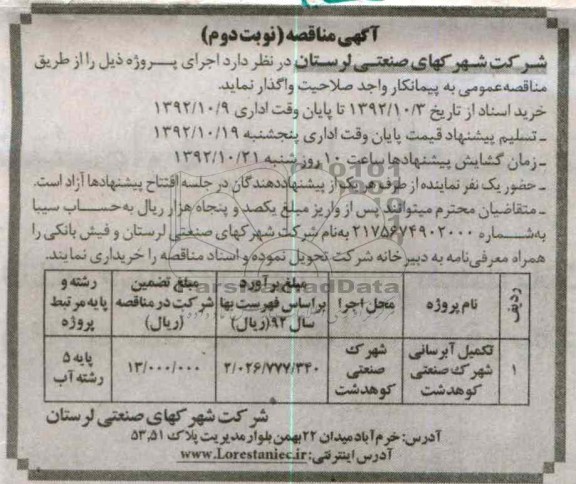 آگهی مناقصه (نوبت دوم)
شرکت شهرکهای صنعتی لرستان در نظر دارد اجرای پروژه ذیل را از طریق
مناقصه عمومی به پیمانکار واجد صلاحیت واگذار نماید.
خرید اسناد از تاریخ ۱۳۹۲/۱۰/۳ تا پایان وقت اداری ۱۳۹۲/۱۰/۹
ـ تسلیم پیشنهاد قیمت پایان وقت اداری پنجشنبه ۱۳۹۲/۱۰/۱۹
ـ زمان گشایش پیشنهادها ساعت ۱۰ روز شنبه ۱۳۹۲/۱۰/۲۱
ـ حضور یک نفر نماینده از طرف هر یک از پیشنهاددهندگان در جلسه افتتاح پیشنهادها آزاد است.
ـ متقاضیان محترم میتوانند پس از واریز مبلغ یکصد و پنجاه هزار ریال به حساب سیبا
به شماره ۲۱۷۵۶۷۴۹۰۲۰۰۰ به نام شرکت شهرکهای صنعتی لرستان و فیش بانکی را
همراه معرفی نامه به دبیرخانه شرکت تحویل نموده و اسناد مناقصه را خریداری نمایند.
ردیف | نام پروژه | محل اجرا | مبلغ برآورد براساس فهرست بها سال ۹۲ (ریال) | مبلغ تضمین شرکت در مناقصه (ریال) | رشته و پایه مرتبط پروژه
۱ | تکمیل آبرسانی شهرک صنعتی کوهدشت | شهرک صنعتی کوهدشت | ۲/۰۲۶/۷۷۷/۳۴۰ | ۱۳/۰۰۰/۰۰۰ | پایه ۵ رشته آب
شرکت شهرکهای صنعتی لرستان
آدرس: خرم آباد میدان ۲۲ بهمن بلوار مدیریت پلاک ۵۳،۵۱
آدرس اینترنتی: www.Lorestaniec.ir